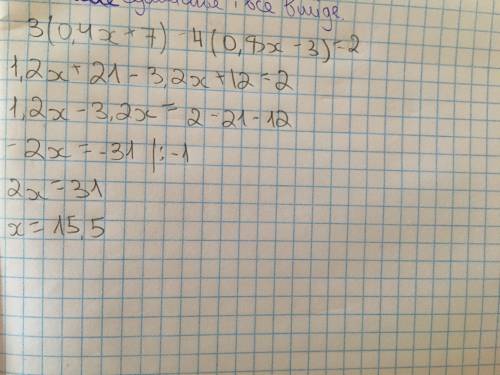 все в виде.
3(0,4x + 7) - 4(0,8x - 3) = 2
1,2x + 21 - 3,2x + 12 = 2
1,2x - 3,2x = 2 - 21 - 12
- 2x = -31 |: -1
2x = 31
x = 15,5